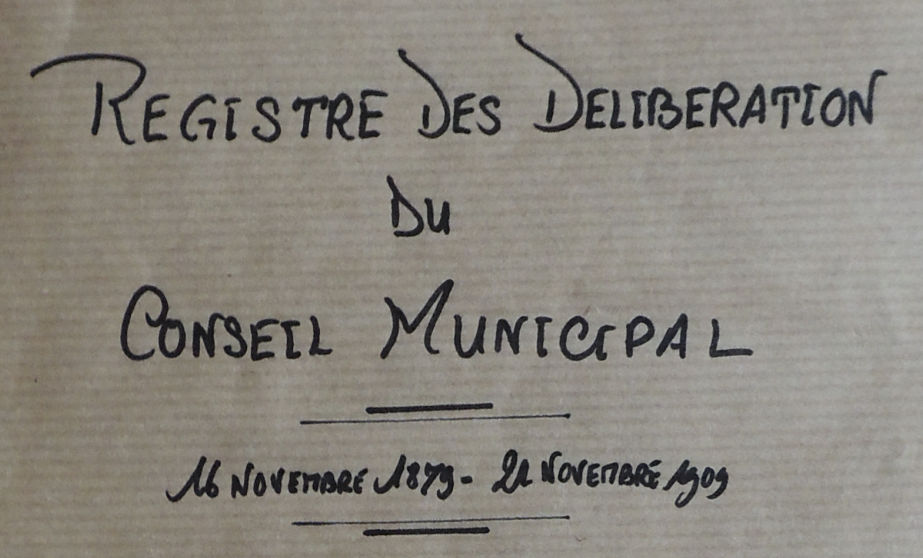 REGISTRE DES DELIBERATION
DU
CONSEIL MUNICIPAL
16 NOVEMBRE 1879 - 21 NOVEMBRE 1909